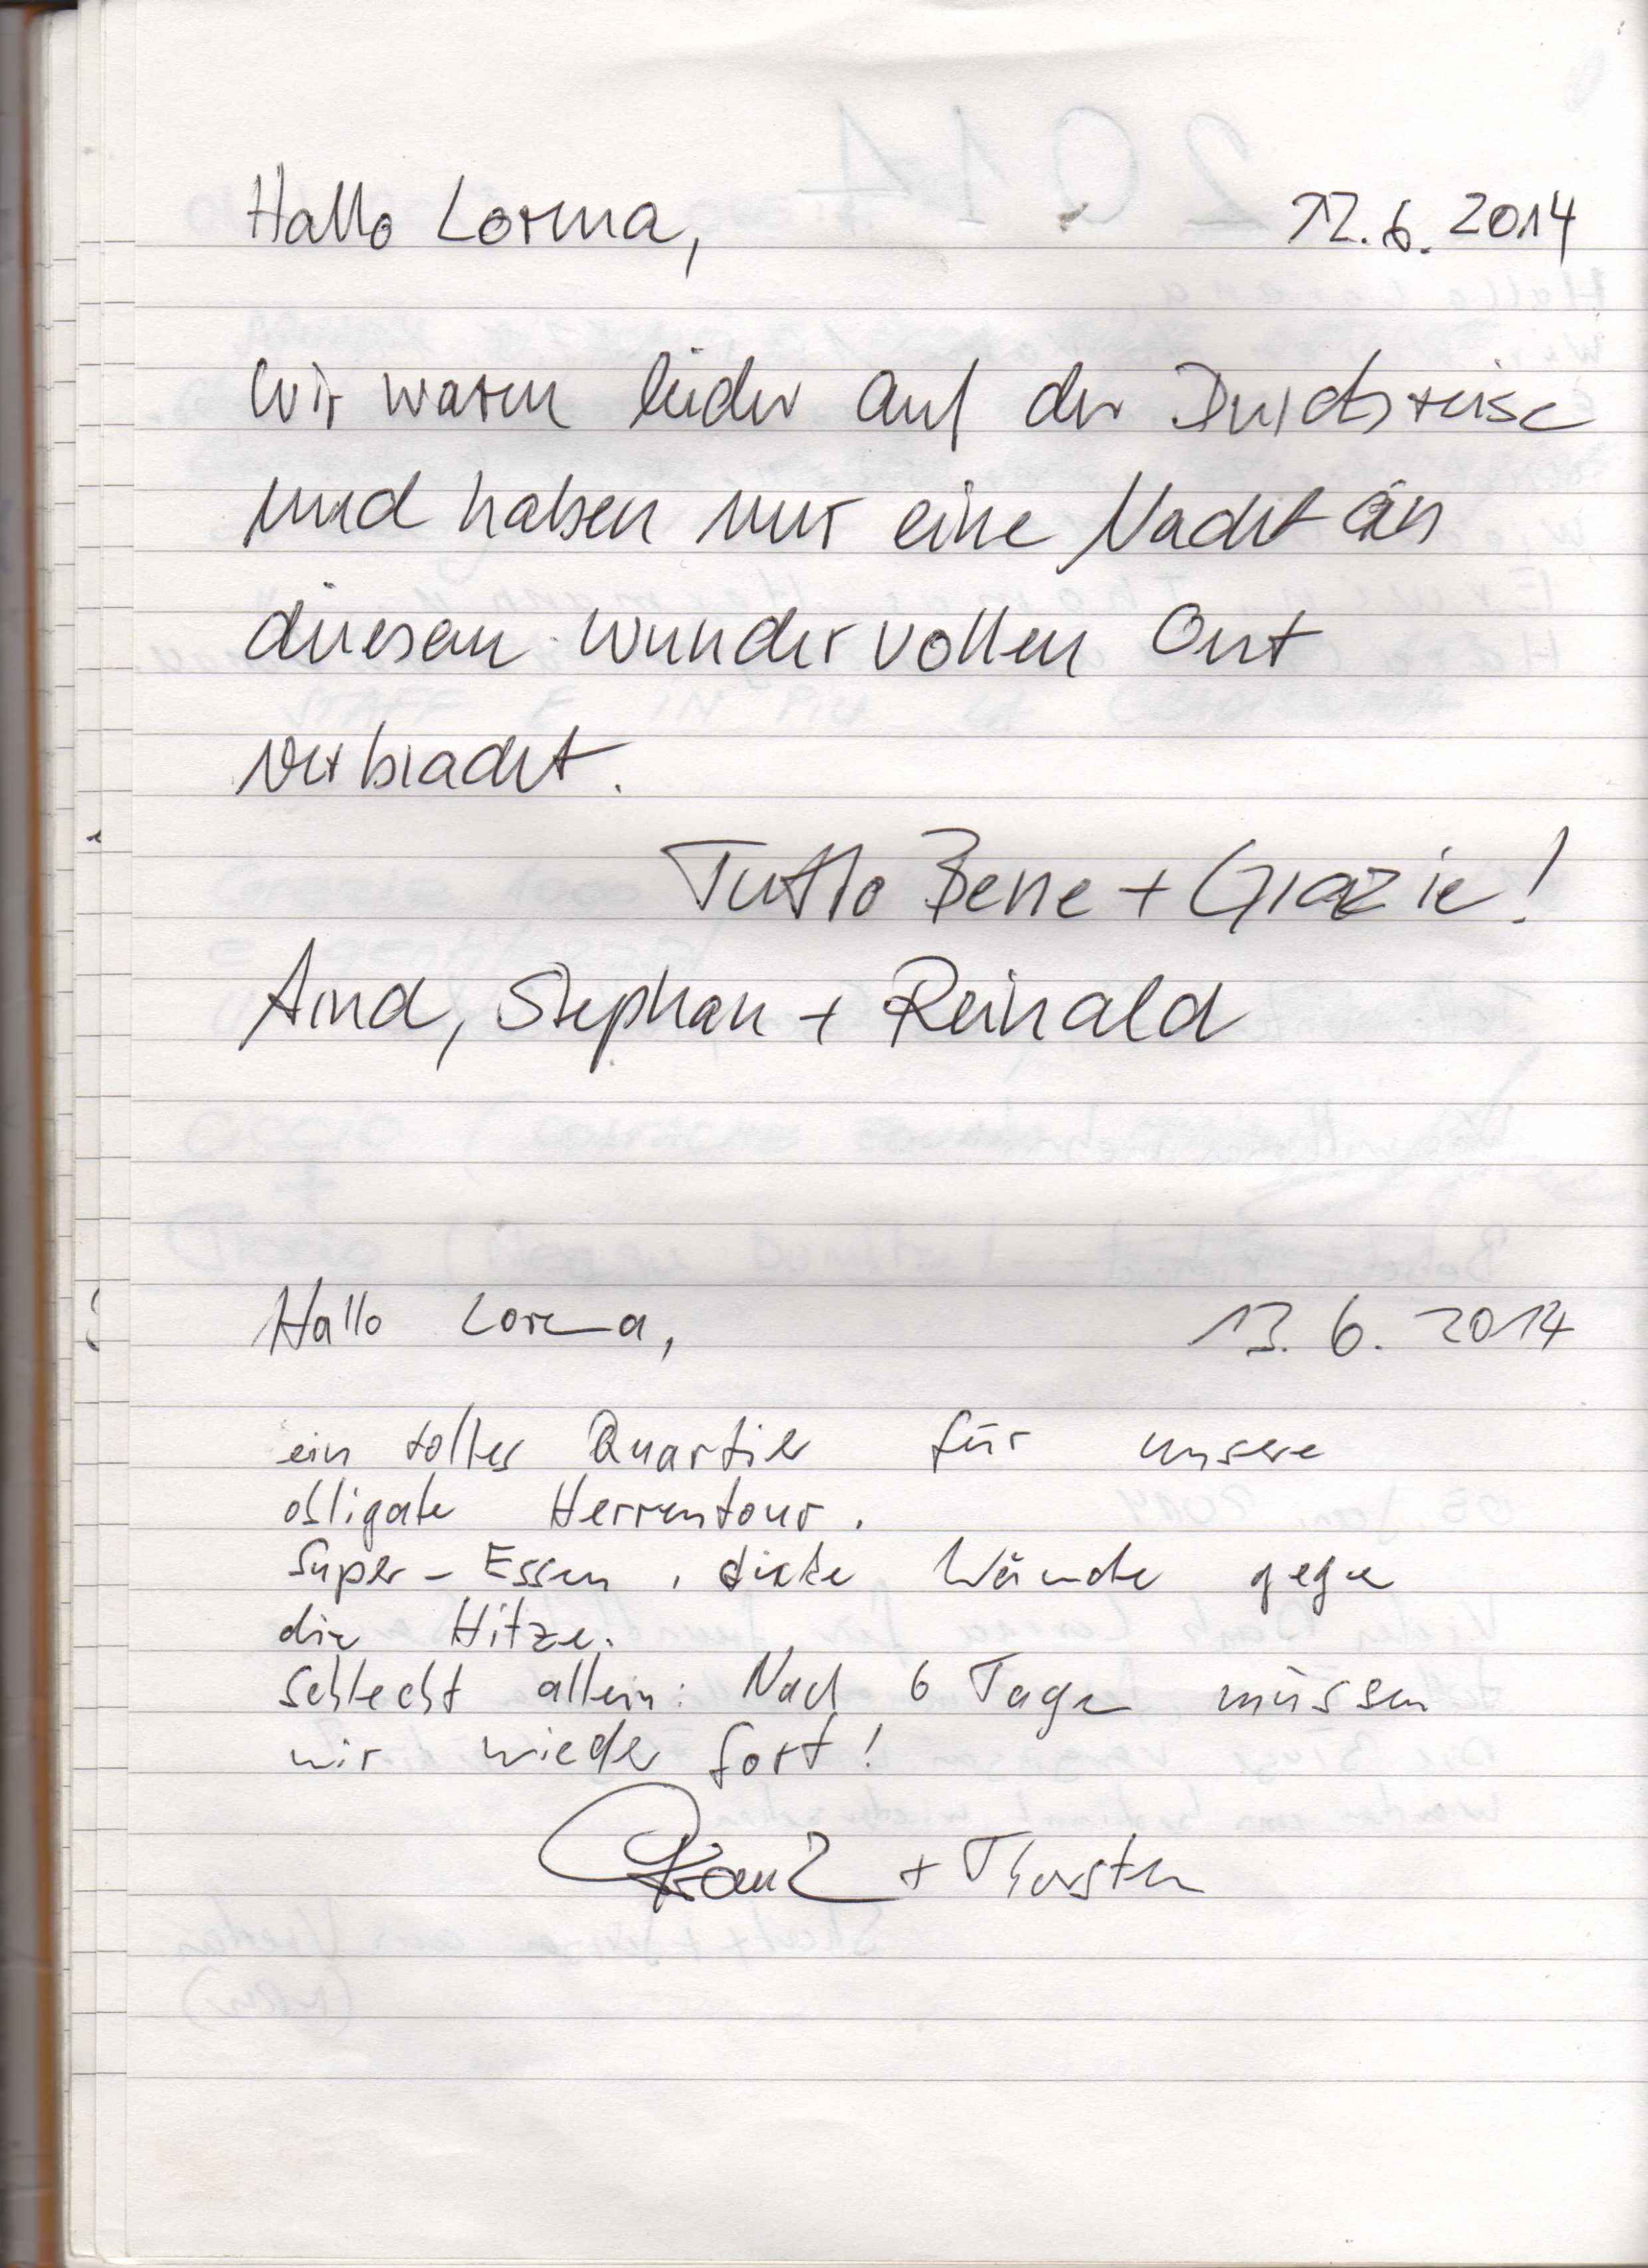 Hallo Lorena, 12.6.2014
Wir waren leider auf der Durchreise
und haben nur eine Nacht an
diesem wundervollen Ort
verbracht.
Tutto Bene + Grazie!
Arnd, Stephan + Reinald
Hallo Lorena, 13.6.2014
ein tolles Quartier für unsere
obligate Herrentour.
Super-Essen, dicke Wände gegen
die Hitze.
Schlecht allein: Nach 6 Tagen müssen
wir wieder fort!
Franz + Thorsten